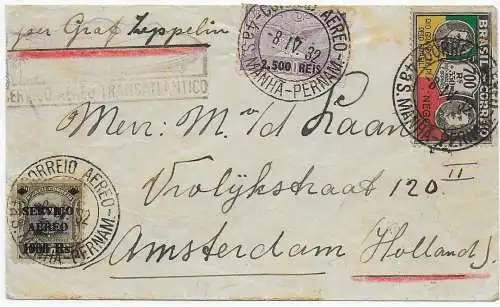 per Graf Zeppelin
CORREIO AEREO
-8 IV 32
2.500 REIS
MANHA-PERNAM.
SERVIÇO AEREO TRANSATLANTICO
BRASIL CORREIO
700
RS
Mevr: M. v/d Laan
Vrolijkstraat 120 II
Amsterdam (Holland)
CORREIO AEREO
SERVIÇO
AEREO
1000 Rs.
MANHA-PERNAM.